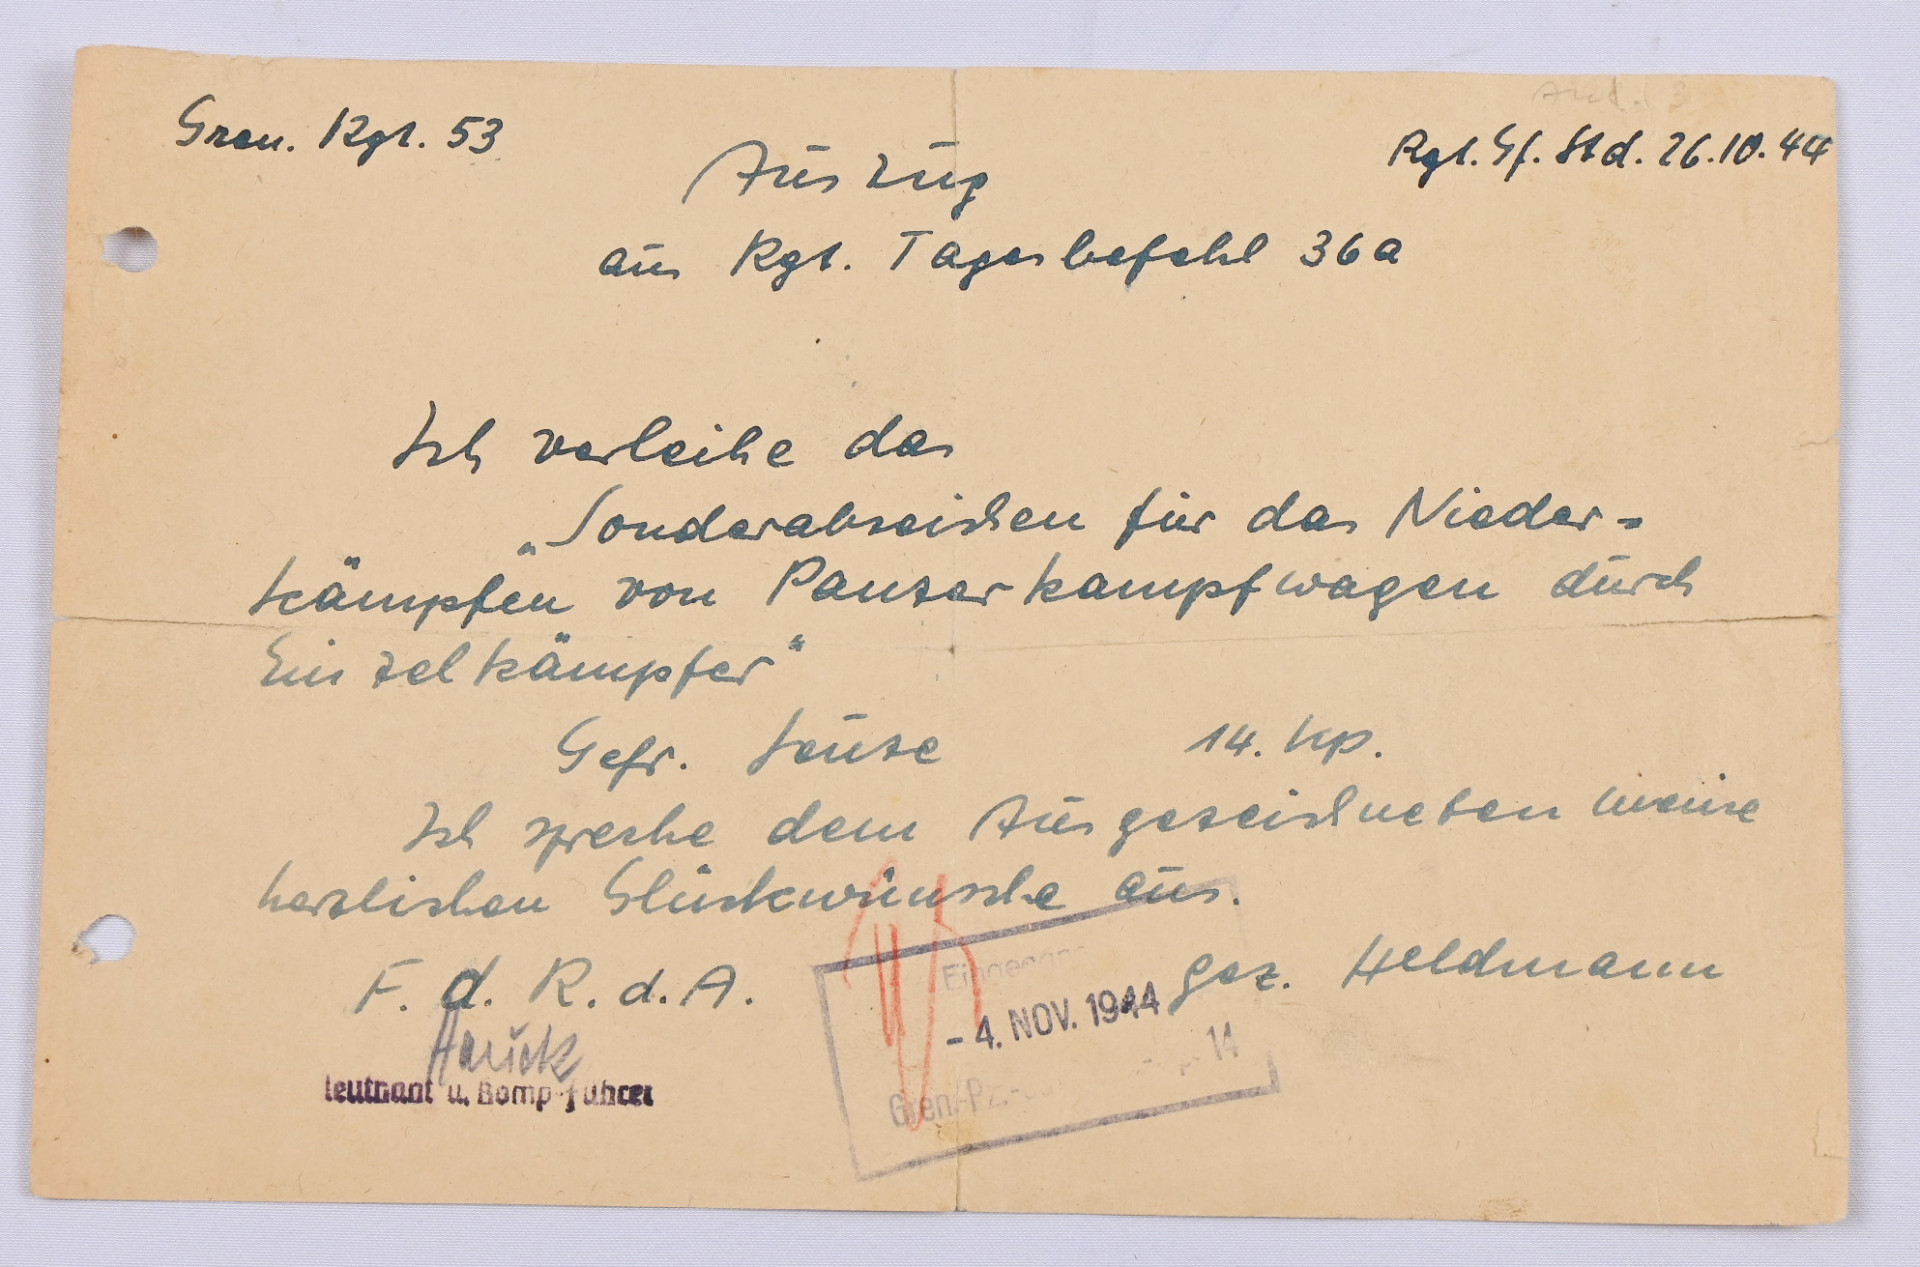 Gren. Rgt. 53
Rgt. Gf. Std. 26.10.44
Auszug
aus Rgt. Tagesbefehl 36a
Ich verleihe das
„Sonderabzeichen für das Nieder=
kämpfen von Panzerkampfwagen durch
Einzelkämpfer“
Gefr. 14. Kp.
Ich spreche dem Ausgezeichneten meine
herzlichen Glückwünsche aus.
F. d. R. d. A.
gez. Heldmann
- 4. NOV. 1944
Gren.-Pz.- 14
Leutnant u. Komp.-führer